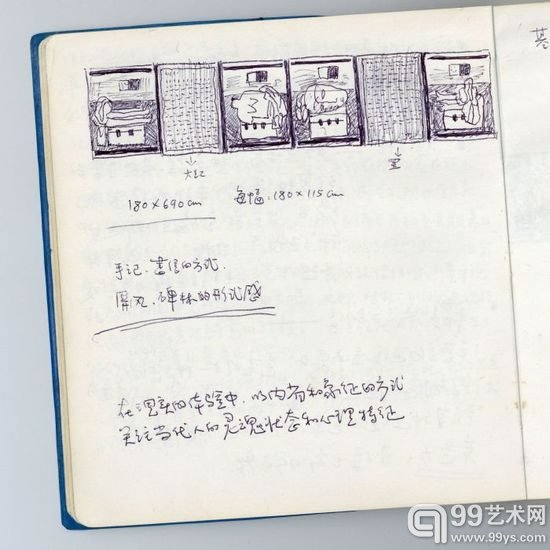 大红
黑
180×690cm 每幅:180×115cm
手记、书信的方式
屏风、碑林的形式感
在现实的体验中,以内省和象征的方式
关注当代人的灵魂状态和心理特征
99艺术网
www.99ys.com